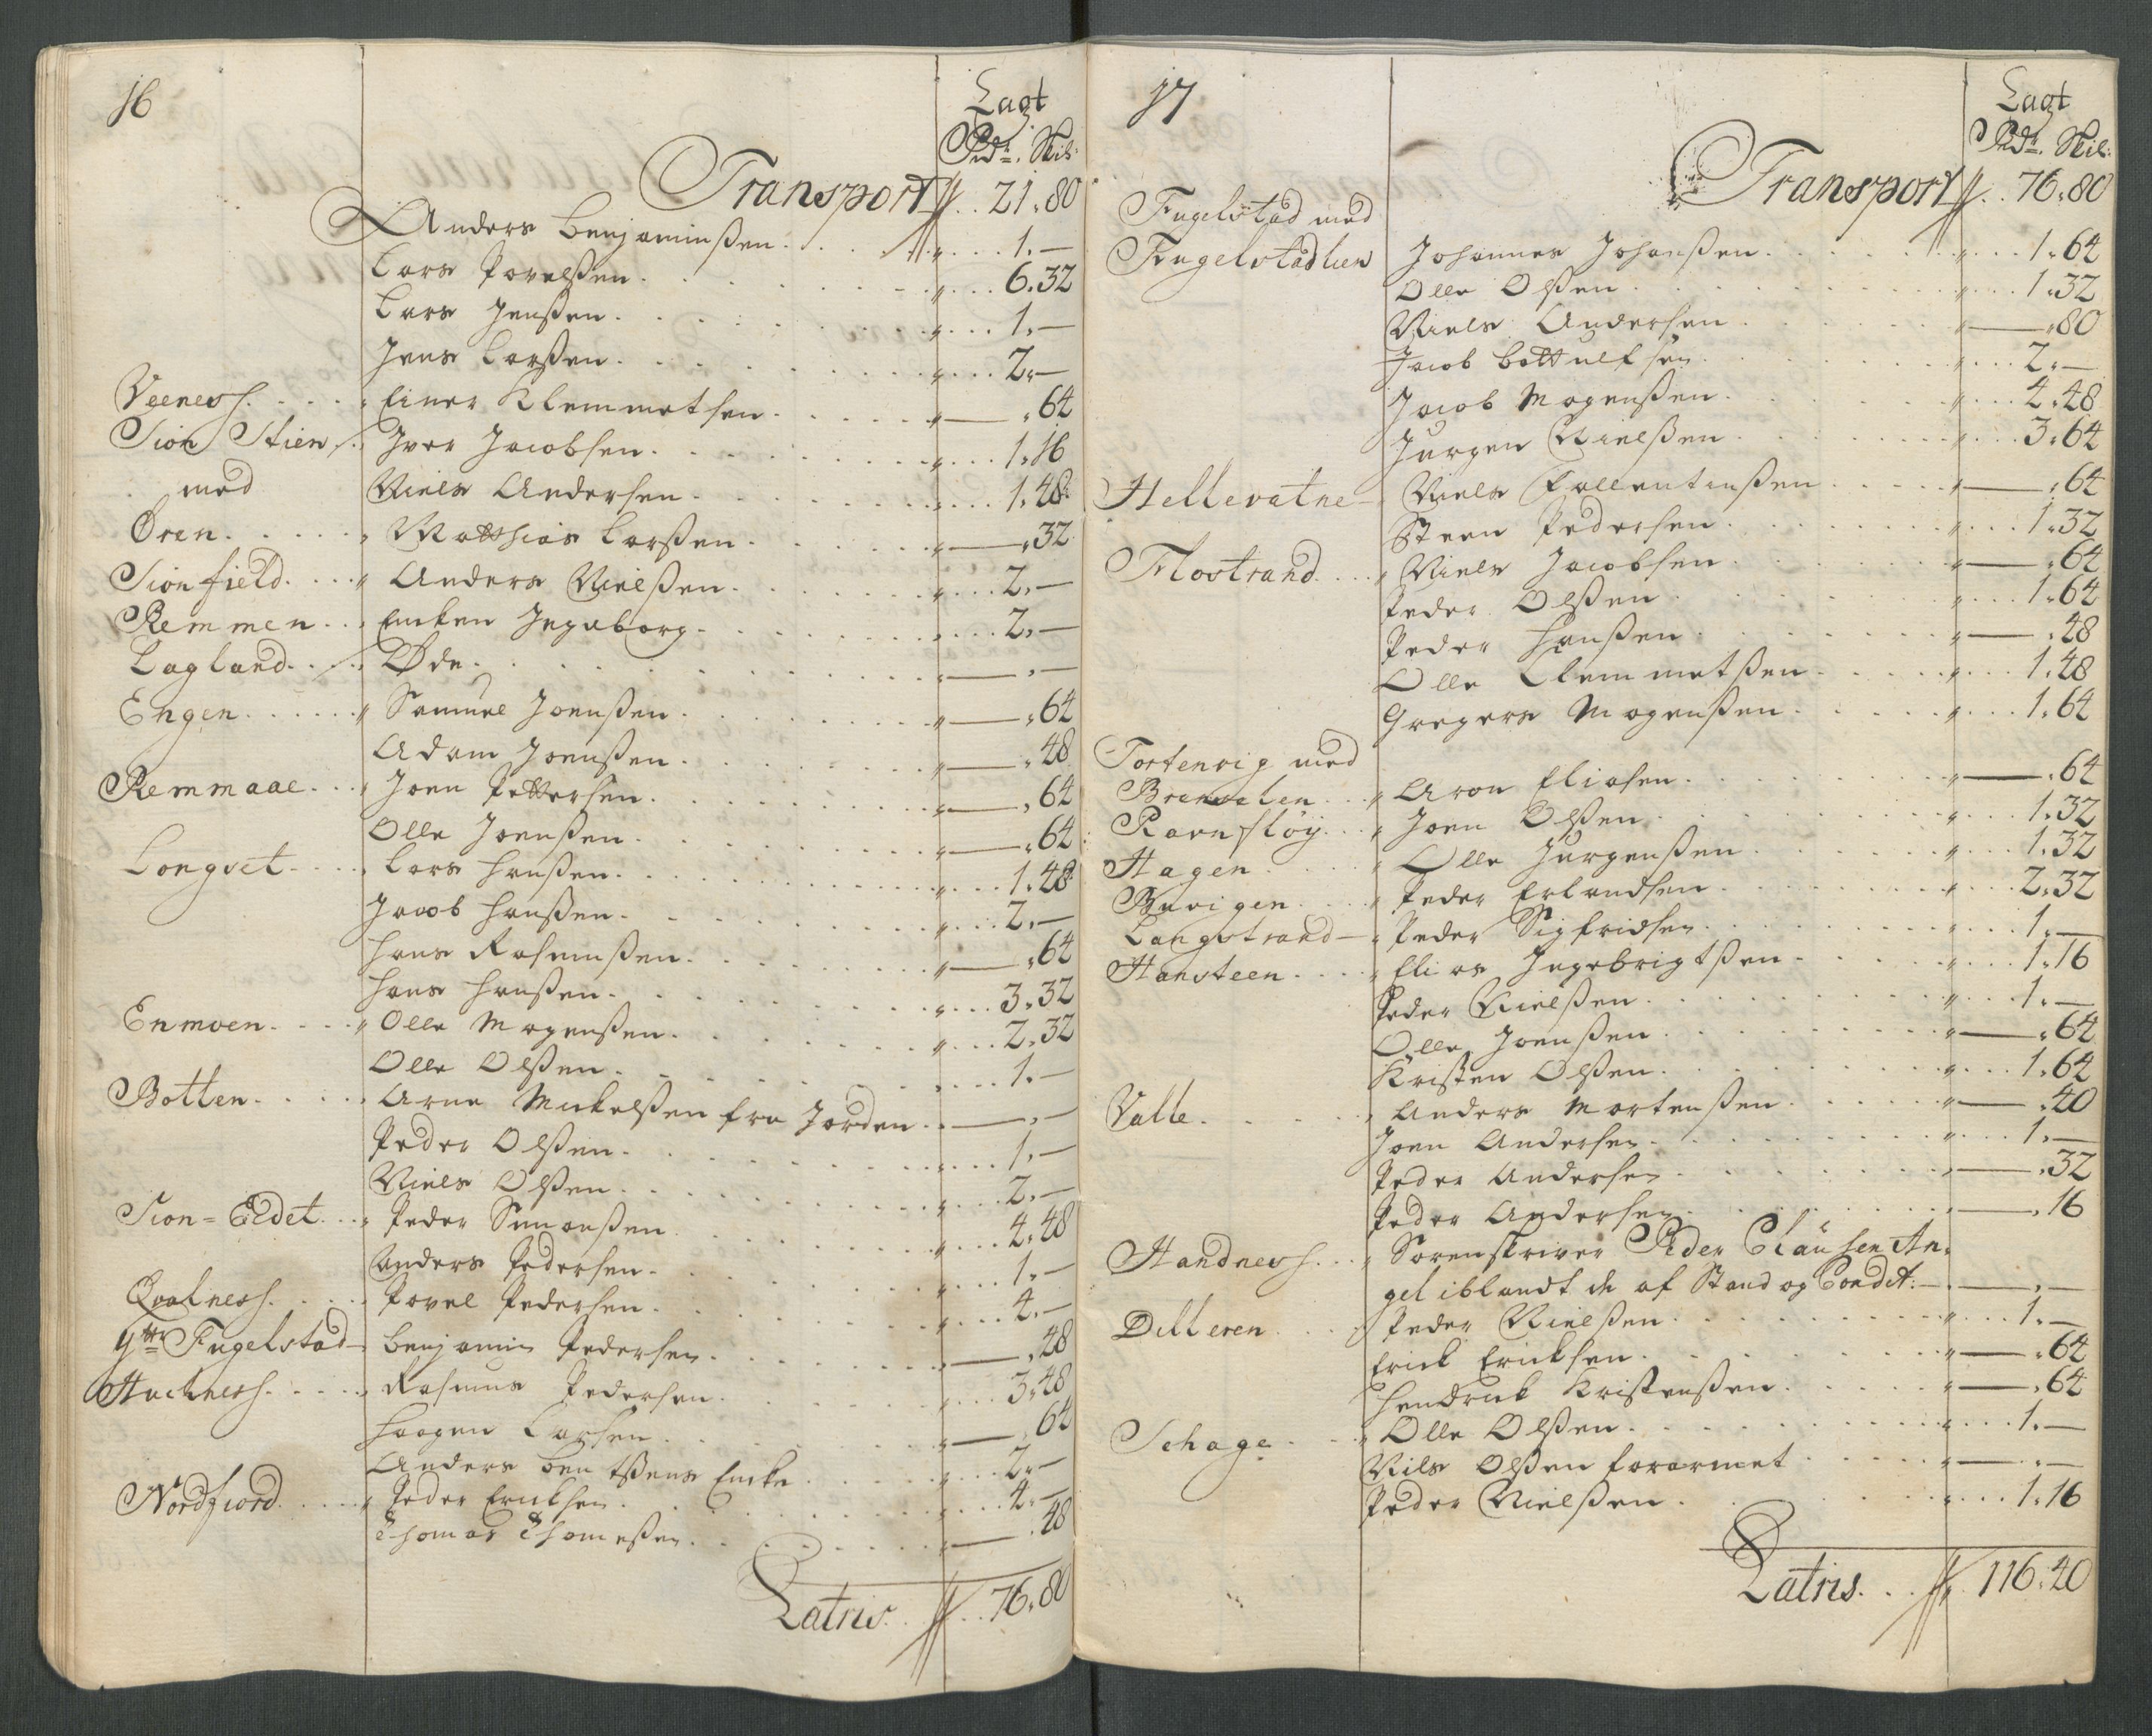 16
Lagt
Rdr. Skil:
Transport 21.80
Anders Benjaminßen 1.—
Lars Povelßen 6.32
Lars Jenßen 1.—
Jens Larßen 2.—
Veenes Einer Klemmetsen — 64
Sion Stien Iver Jacobsen 1.16
med Niels Andersen 1.48
Øren Matthias Larßen — 32
Sionfield Anders Nielßen 2.—
Remmen Encken Ingeborg 2.—
Lagland Øde — . —
Engen Samuel Joenßen — 64
Adam Joenßen — 48
Remmaae Joen Pettersen — 64
Olle Joenßen — 64
Longset Lars Hanßen 1.48
Jacob Hanßen 2.—
Hans Rasmußen — 64
Hans Hanßen 3.32
Enmoen Olle Mogenßen 2.32
Olle Olßen 1.—
Botten Arne Mickelßen fra Jorden — . —
Peder Olßen 1.—
Niels Olßen 2.—
Sion=Eidet Peder Simonßen 4.48
Anders Pedersen 1.—
Qvalness Povel Pedersen 4.—
Ytter Fugelstad Benjamin Pedersen — 48
Huckness Rasmus Pedersen 3.48
Haagen Larsen — 64
Anders Bentßens Encke 2.—
Nordfiord Peder Ericksen 4.—
Thomas Thomeßen — 48
Latris 76.80
17
Lagt
Rdr. Skil:
Transport 76.80
Fugelstad med
Fugelstadlien Johannes Johanßen 1.64
Olle Olßen 1.32
Niels Andersen — 80
Jacob Bottulfsen 2.—
Jacob Mogenßen 4.48
Jurgen Nielßen 3.64
Hellevatne Niels Fallentinßen — 64
Steen Pedersen 1.32
Flostrand Niels Jacobsen — 64
Peder Olßen 1.64
Peder Hanßen — 48
Olle Clemmetßen 1.48
Gregers Mogenßen 1.64
Tortenvig med
Brenselen Aron Eliasen — 64
Ravnfløÿ Joen Olßen 1.32
Hagen Olle Jurgenßen 1.32
Buvigen Peder Erlandsen 2.32
Langstrand Peder Sigfridsen 1.—
Hansteen Elias Ingebrigtßen 1.16
Peder Nielßen 1.—
Olle Joenßen — 64
Kristen Olßen 1.64
Valle Anders Mortenßen — 40
Joen Andersen 1.—
Peder Andersen — 32
Peder Andersen — 16
Handness Sorenskriver Peder Claüsen An-
gel iblandt de af Stand og Condit: — . —
Dilleren Peder Nielßen 1.—
Erick Ericksen — 64
Hendrick Kristenßen — 64
Schage Olle Olßen 1.—
Nils Olßen forarmet — . —
Peder Nielßen 1.16
Latris 116.40